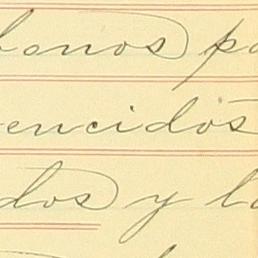 bonos pa
encidos
dos y la